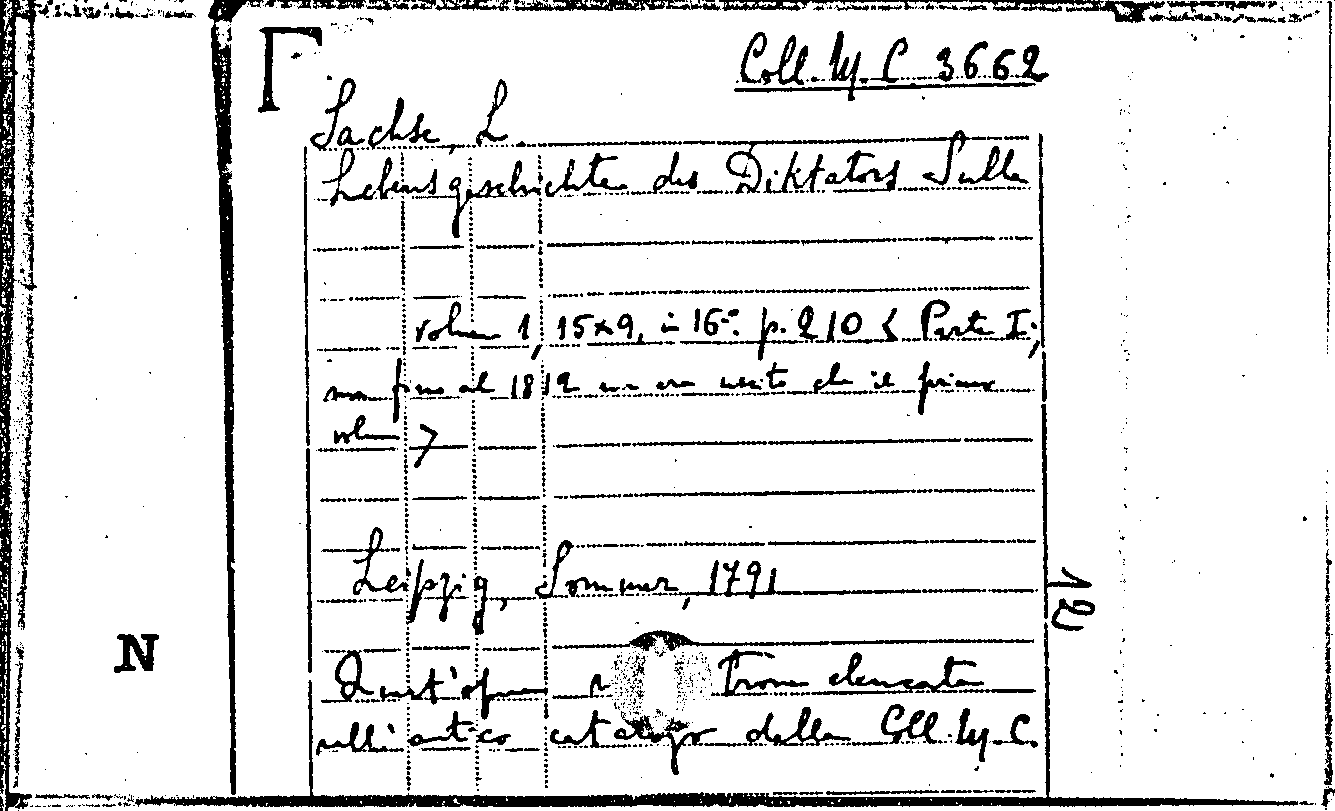 Coll. M. C 3662
Sachse, L.
Lebensgeschichte des Diktators Sulla
volume 1, 15×9, in 16-° p. 210 < Parte I;
ma fino al 1812 era uscito che il primo
volume >
Leipzig, Sommer, 1791
12
N
Quest'opera trova elencata
nell'antico catalogo della Coll. M. C.